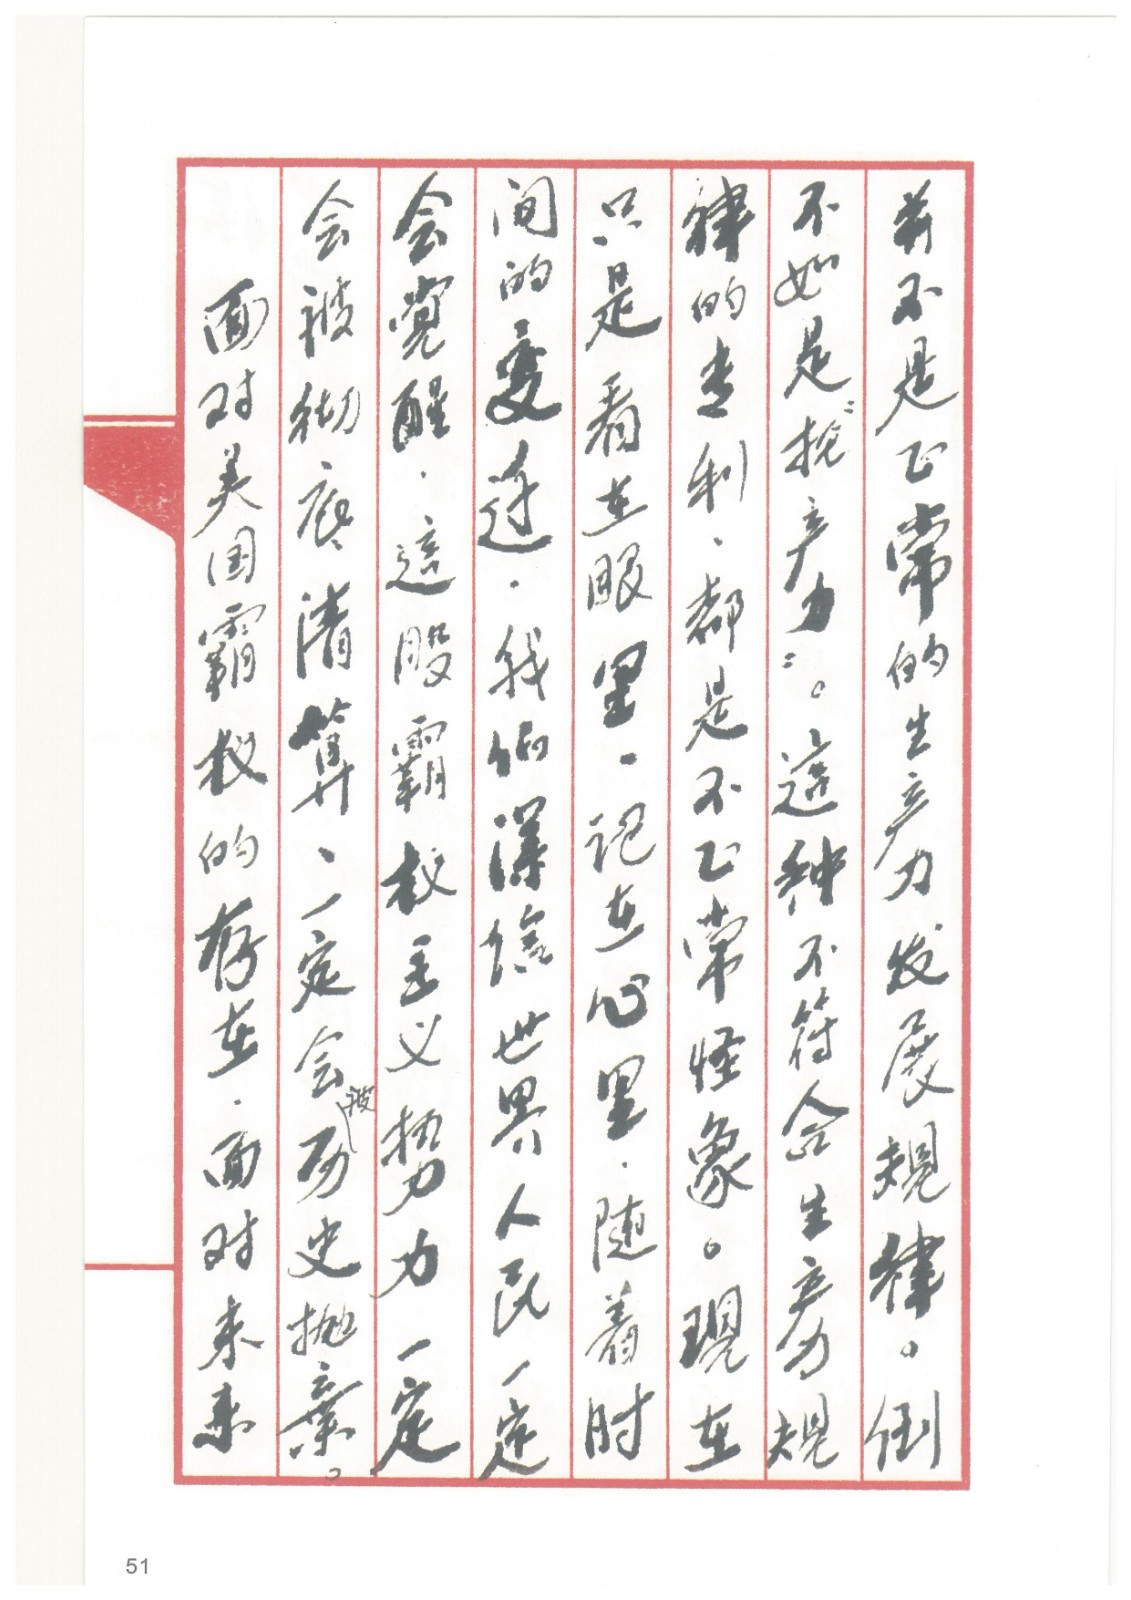 并不是正常的生产力发展规律。倒
不如是“抢产力”。这种不符合生产力规
律的专利、都是不正常怪象。现在
只是看在眼里、记在心里.随着时
间的变迁.我们深信世界人民一定
会觉醒.这股霸权主义势力一定
会被彻底清算、一定会被历史抛弃。
面对美国霸权的存在.面对未来
51